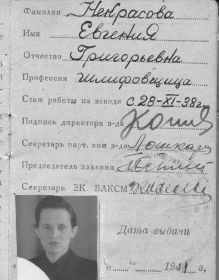 Фамилия Некрасова
Имя Евгения
Отчество Григорьевна
Профессия шлифовщица
Стаж работы на заводе с 28-XI-38г.
Подпись директора з-да
Секретарь парт. ком з-да
Председатель завкома
Секретарь ЗК. ВЛКСМ
Дата выдачи
194 г.